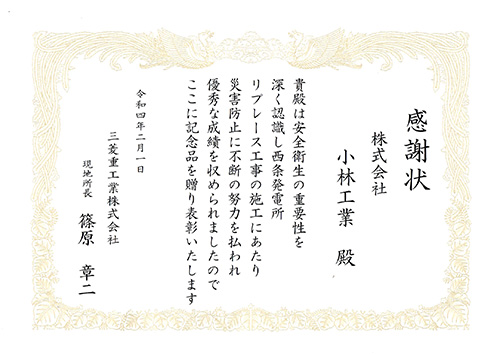 感謝状
株式会社
小林工業 殿
貴殿は安全衛生の重要性を
深く認識し西条発電所
リプレース工事の施工にあたり
災害防止に不断の努力を払われ
優秀な成績を収められましたので
ここに記念品を贈り表彰いたします
令和四年二月一日
三菱重工業株式会社
現地所長 篠原 章二